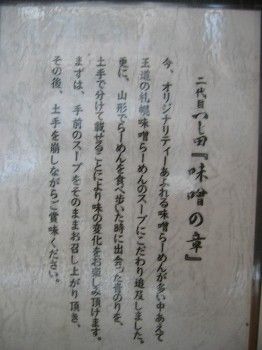 二代目つじ田『味噌の章』
今、オリジナリティーあふれる味噌らーめんが多い中あえて
王道の札幌味噌らーめんのスープにこだわり追及しました。
更に、山形でらーめんを食べ歩いた時に出会った青のりを、
土手で分けて載せることにより味の変化をお楽しみ頂けます。
まずは、手前のスープをそのままお召し上がり頂き、
その後、土手を崩しながらご賞味ください。